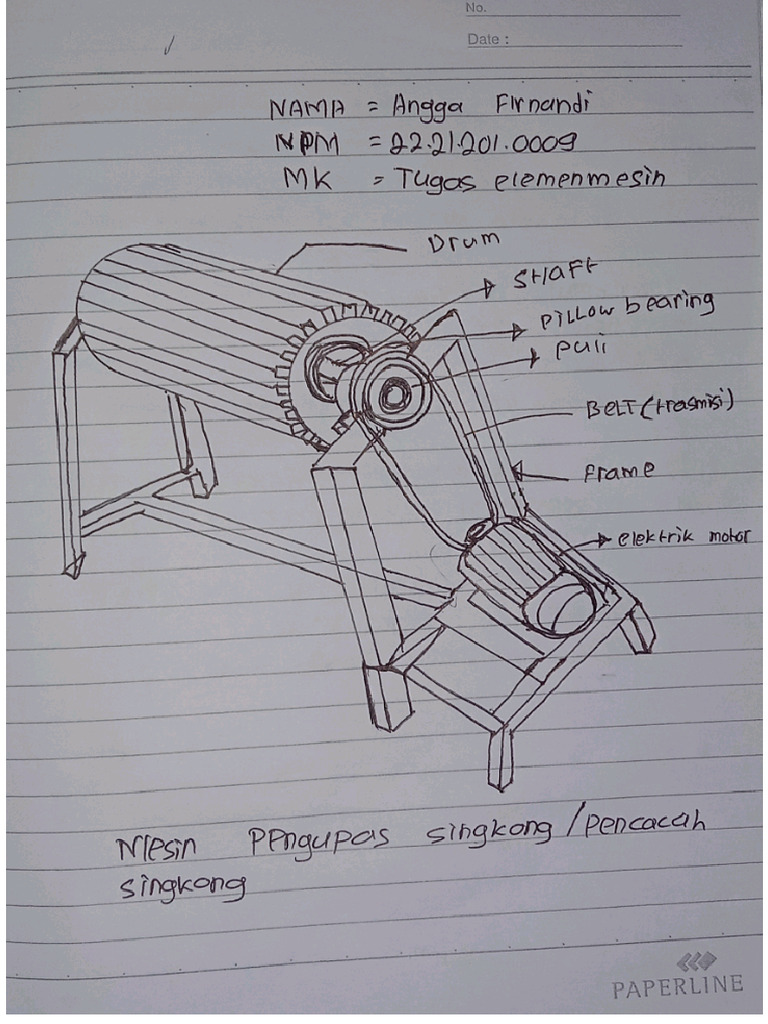 No.
Date :
NAMA = Angga Firnandi
NPM = 22.21.201.0009
MK = Tugas elemenmesin
Drum
SHAFT
Pillow bearing
Puli
BELT (trasmisi)
Frame
elektrik motor
Mesin Pengupas singkong / pencacah
singkong
PAPERLINE